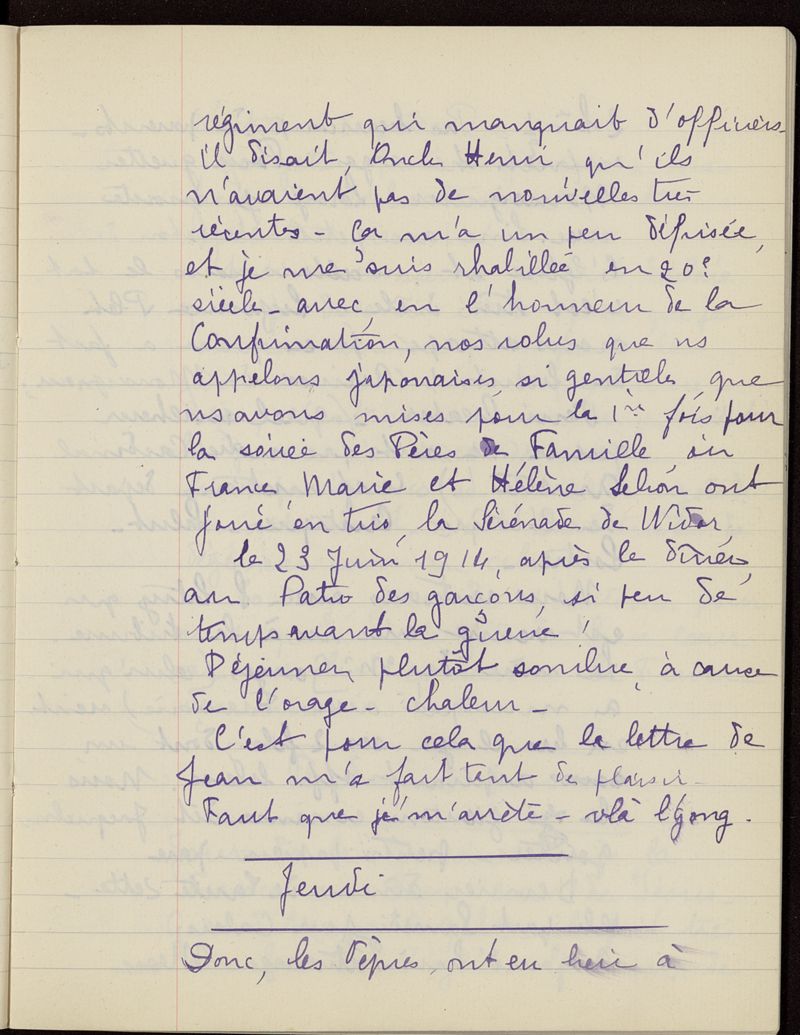 régiment qui manquait d'officiers.
il disait, Oncle Henri qu'ils
n'avaient pas de nouvelles très
récentes - Ça m'a un peu défrisée,
et je me suis rhabillée en 20e
siècle - avec, en l'honneur de la
Confirmation, nos robes que ns
appelons japonaises, si gentilles, que
ns avons mises pour la 1ère fois pour
la soirée des Pères de Famille, où
France, Marie et Hélène ont
joué en trio, la Sérénade de Widor,
le 23 Juin 1914, après le dîner,
au Patro des garçons, si peu de
temps avant la guerre !
Déjeuner, plutôt sombre, à cause
de l'orage - chaleur -
C'est pour cela que la lettre de
Jean m'a fait tant de plaisir -
Faut que je m'arrête - v'là l'gong.
Jeudi
Donc, les Vêpres, ont eu lieu à